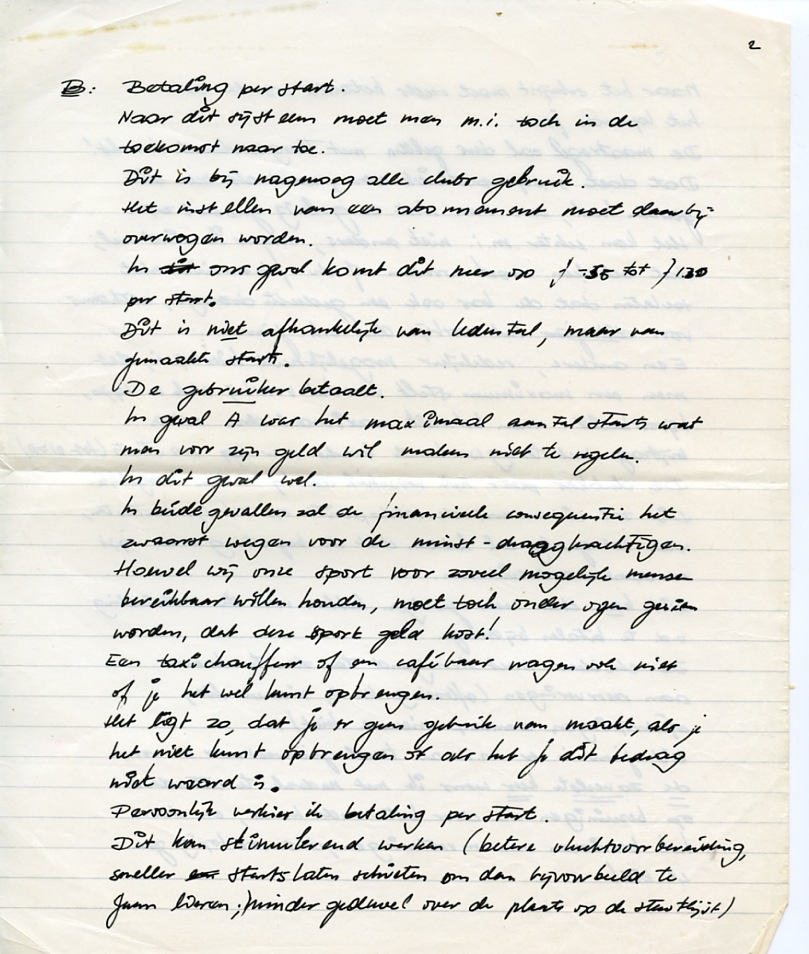 2
B: Betaling per start.
Naar dit systeem moet men m.i. toch in de
toekomst naar toe.
Dit is bij nagenoeg alle clubs gebruik.
Het instellen van een abonnement moet daarbij
overwogen worden.
In dit ons geval komt dit neer op f -,35 tot f 1,30
per start.
Dit is niet afhankelijk van ledental, maar van
gemaakte starts.
De gebruiker betaalt.
In geval A was het maximaal aantal starts wat
men voor zijn geld wil maken niet te regelen.
In dit geval wel.
In beide gevallen zal de financiele consequentie het
zwaarst wegen voor de minst-draagkrachtigen.
Hoewel wij onze sport voor zoveel mogelijk mensen
bereikbaar willen houden, moet toch onder ogen gezien
worden, dat deze sport geld kost!
Een taxichauffeur of een cafébaas vragen ook niet
of je het wel kunt opbrengen.
Het ligt zo, dat je er geen gebruik van maakt, als je
het niet kunt opbrengen of als het je dit bedrag
niet waard is.
Persoonlijk verkies ik betaling per start.
Dit kan stimulerend werken (betere vluchtvoorbereiding,
sneller starts laten schieten om dan bijvoorbeeld te
gaan lieren; minder gedonvel over de plaats op de startlijst)